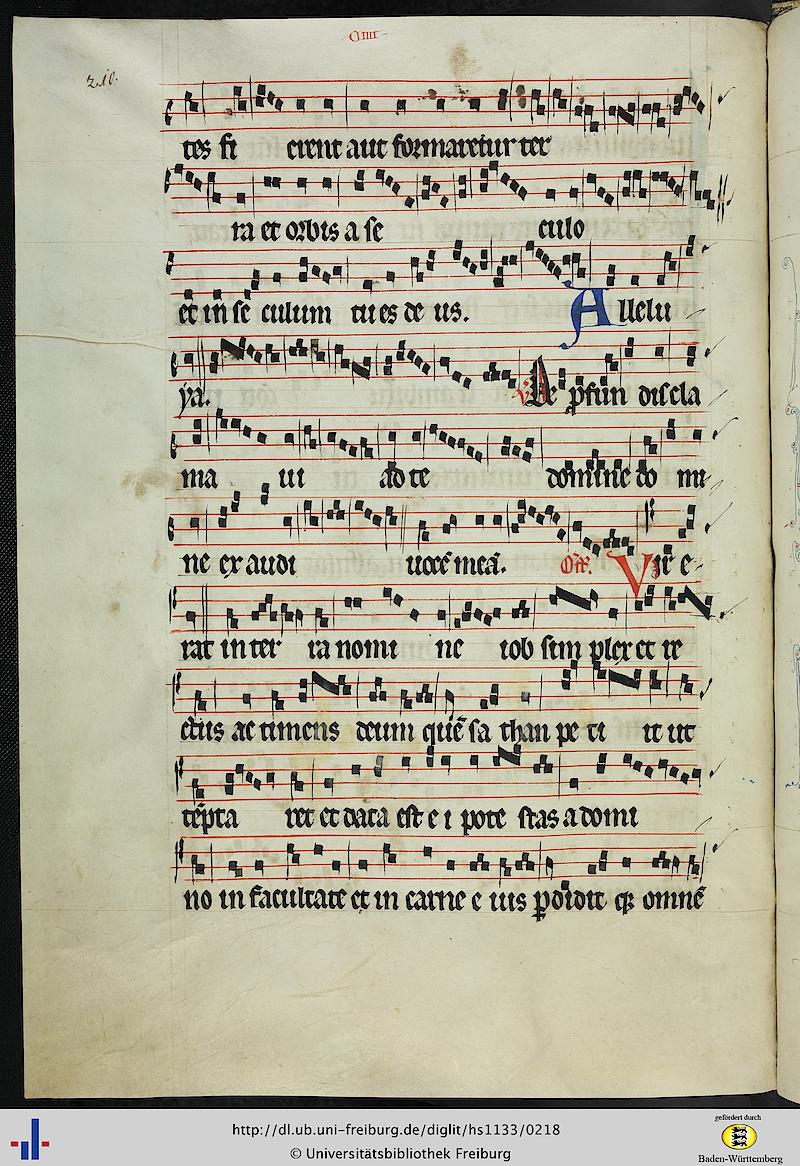 CIIII
210.
tes fi erent aut formaretur ter
ra et orbis a se culo
et in se culum tu es de us. Allelu
ya. V De pfun dis cla
ma ui ad te domine do mi
ne ex audi uocē meā. Off. Vir e
rat in ter ra nomi ne iob sim plex et re
ctus ac timens deum quē sa than pe ti it ut
tēpta ret et data est e i pote stas a domi
no in facultate et in carne e ius pdidit q omnē
http://dl.ub.uni-freiburg.de/diglit/hs1133/0218
© Universitätsbibliothek Freiburg
gefördert durch
Baden-Württemberg